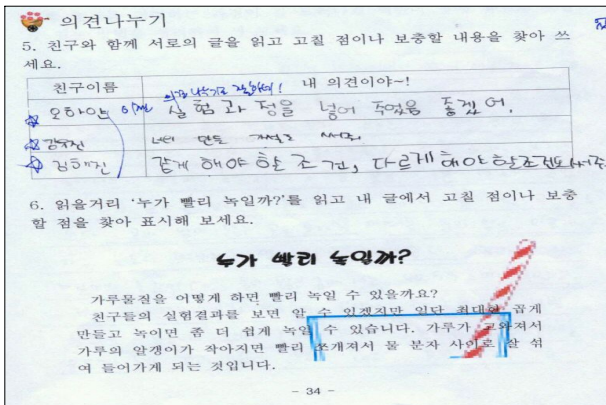 의견나누기
5. 친구와 함께 서로의 글을 읽고 고칠 점이나 보충할 내용을 찾아 쓰
세요.
친구이름 내 의견이야~!
실험과정을 넣어 주었음 좋겠어.
김해진 같게 해야 할 조건, 다르게 해야 할 조건도
6. 읽을거리 '누가 빨리 녹일까?'를 읽고 내 글에서 고칠 점이나 보충
할 점을 찾아 표시해 보세요.
누가 빨리 녹일까?
가루물질을 어떻게 하면 빨리 녹일 수 있을까요?
친구들의 실험결과를 보면 알 수 있겠지만 일단 최대한 곱게
만들고 녹이면 좀 더 쉽게 녹일 수 있습니다. 가루가 고와져서
가루의 알갱이가 작아지면 빨리 쪼개져서 물 분자 사이로 잘 섞
여 들어가게 되는 것입니다.
- 34 -